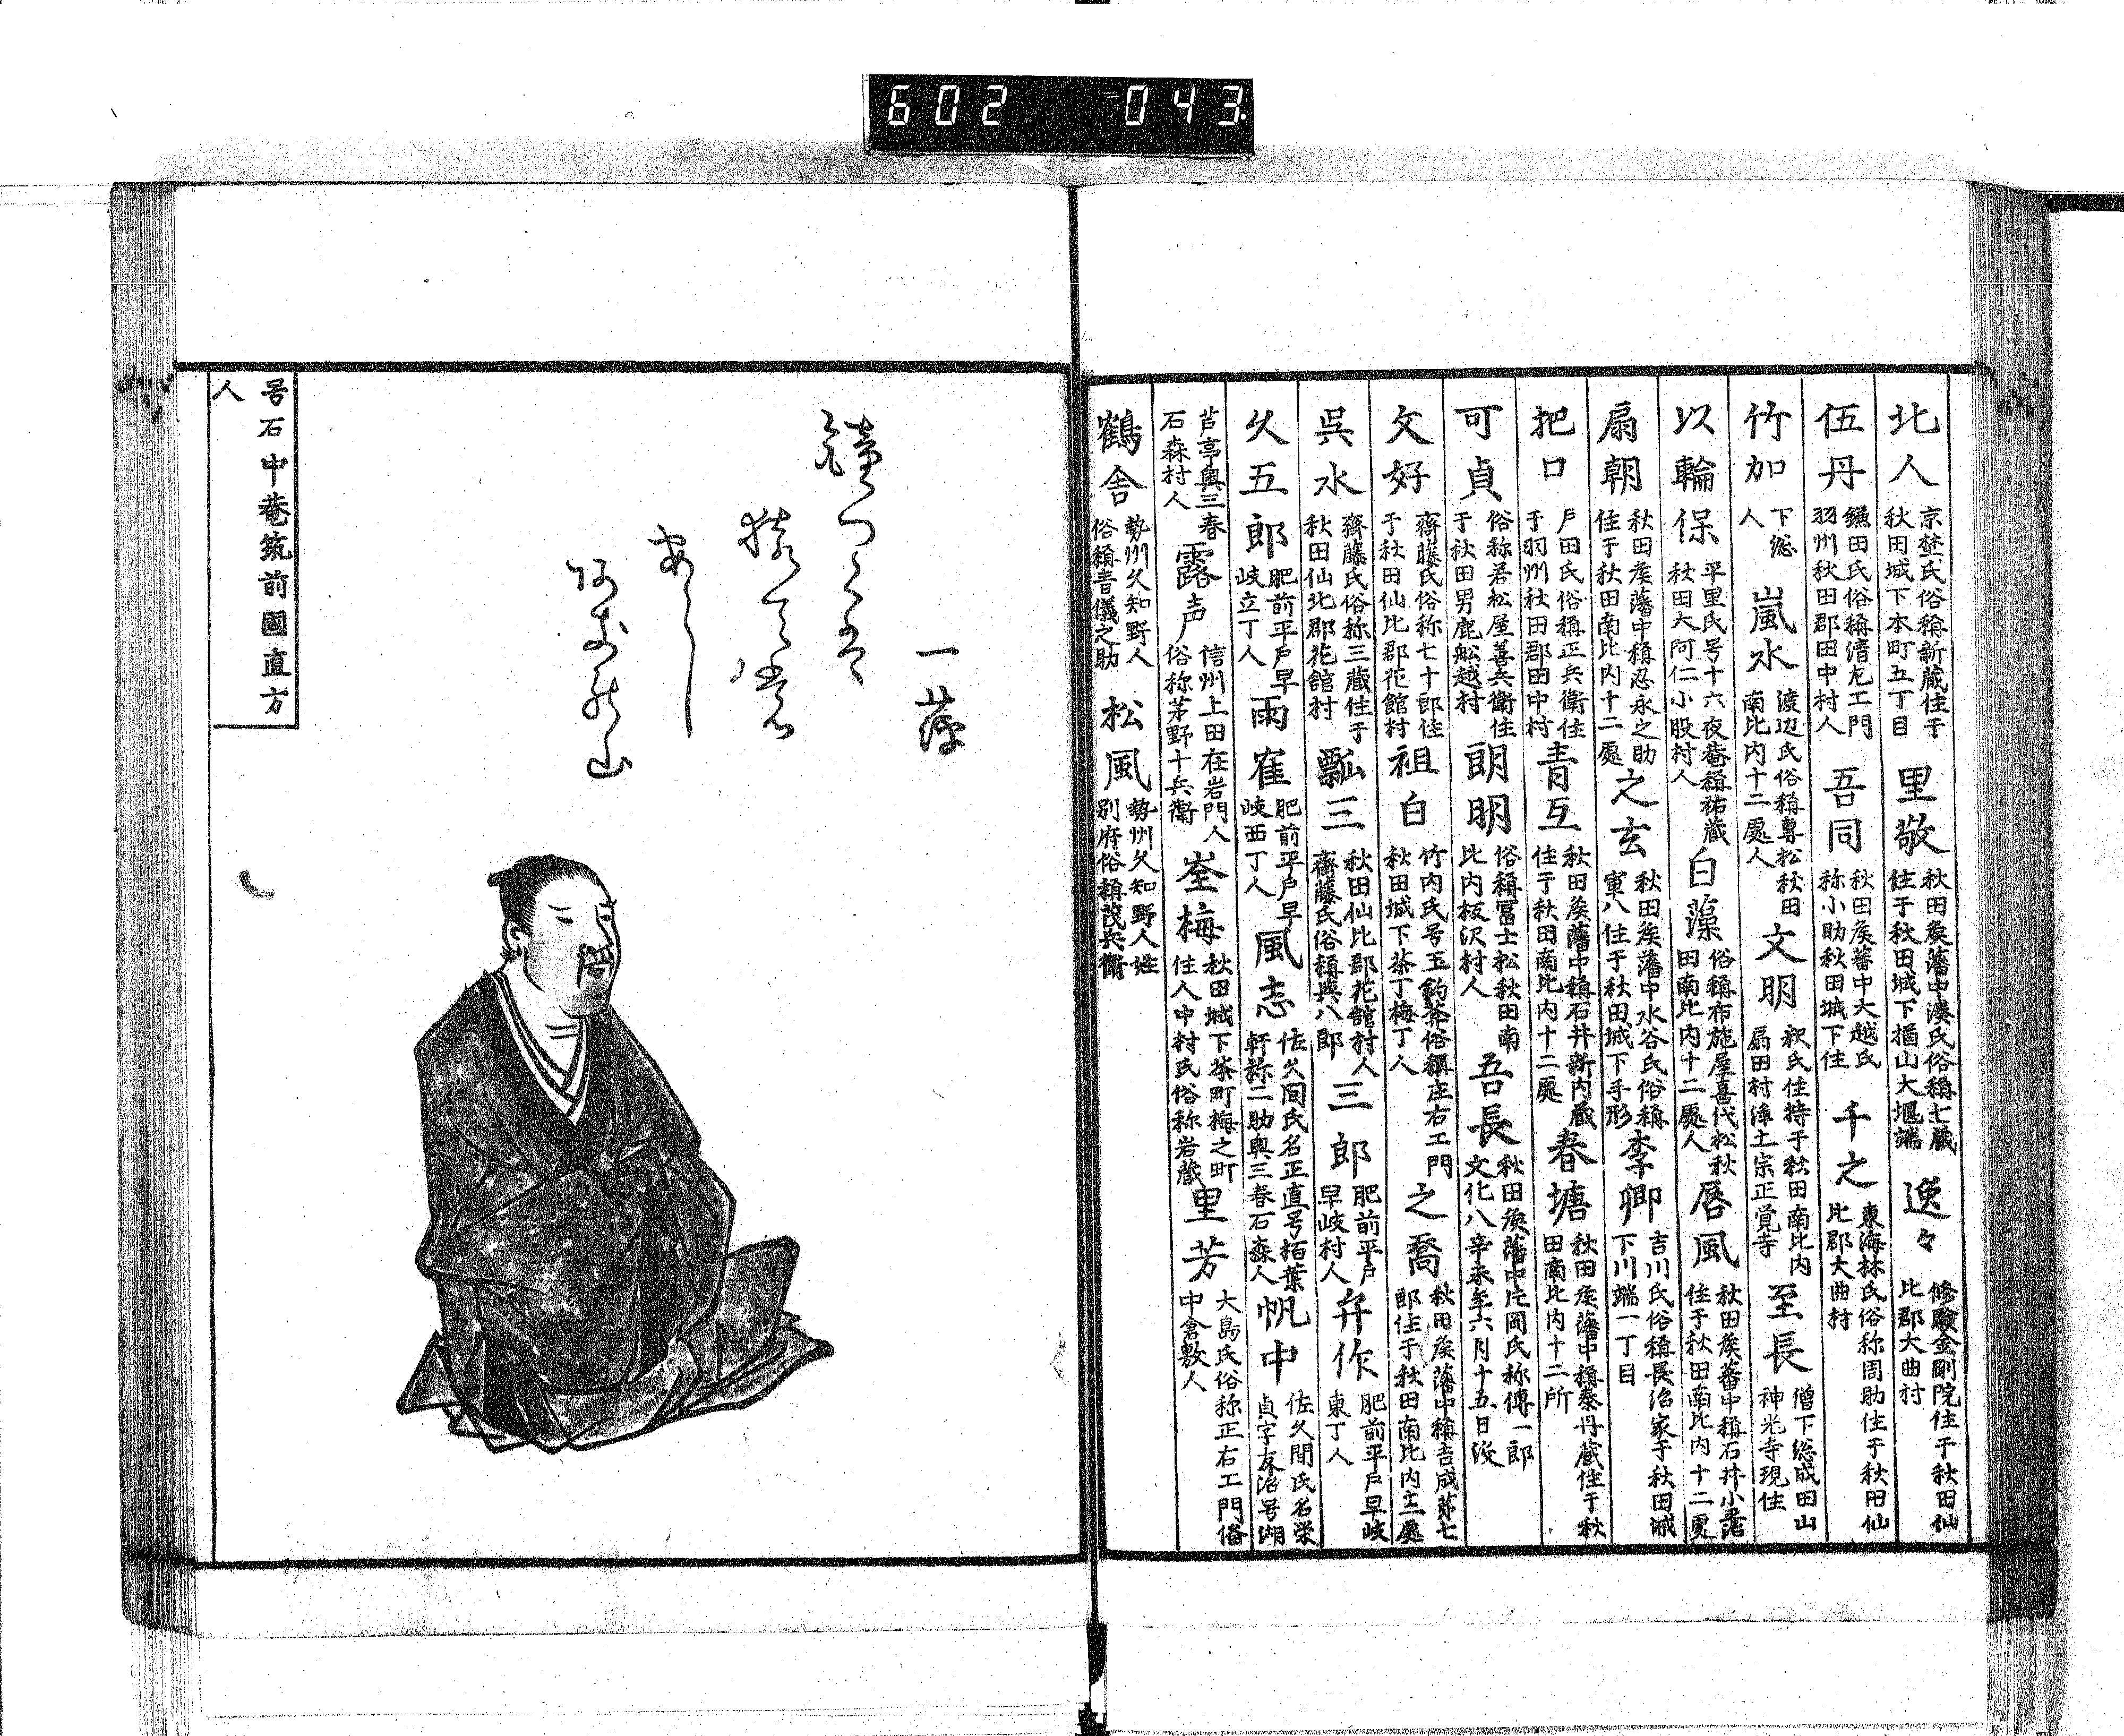 602 043
北人 京埜氏俗稱新蔵住于秋田城下本町五丁目 里敬 秋田矦藩中湊氏俗稱七蔵住于秋田城下楢山大堰端 逸々 修驗金剛院住于秋田仙北郡大曲村
伍丹 鎌田氏俗稱清左エ門羽州秋田郡田中村人 吾同 秋田矦蕃中大越氏称小助秋田城下住 千之 東海林氏俗称周助住于秋田仙北郡大曲村
竹加 下総人 嵐水 渡辺氏俗稱專松秋田南比内十二處人 文明 釈氏住持于秋田南比内扇田村浄土宗正覚寺 至長 僧下総成田山神光寺現住
以輪 保 平里氏号十六夜菴稱祐蔵秋田大阿仁小股村人 白藻 俗稱布施屋喜代松秋田南比内十二處人 唇風 秋田矦蕃中稱石井小住于秋田南比内十二處
扇朝 秋田矦藩中稱忍永之助住于秋田南比内十二處 之玄 秋田矦藩中水谷氏俗稱軍八住于秋田城下手形 李卿 吉川氏俗稱長治家于秋田城下川端一丁目
把口 戸田氏俗稱正兵衛住于羽州秋田郡田中村 青互 秋田矦藩中稱石井新内蔵住于秋田南比内十二處 春塘 秋田矦藩中稱泰丹蔵住于秋田南比内十二所
可貞 俗称若松屋善兵衛住于秋田男鹿舩越村 朗明 俗稱冨士松秋田南比内板沢村人 吾長 秋田矦藩中片岡氏称傳一郎文化八辛未年六月十五日没
文好 齋藤氏俗称七十郎住于秋田仙北郡花館村 祖白 竹内氏号玉釣齋俗稱庄右エ門秋田城下茶丁梅丁人 之喬 秋田矦藩中稱吉成苐七郎住于秋田南比内十二處
呉水 齋藤氏俗称三蔵住于秋田仙北郡花館村 瓢三 秋田仙北郡花館村人齋藤氏俗稱與八郎 三郎 肥前平戸早岐村人 弁作 肥前平戸早岐東丁人
久五郎 肥前平戸早岐立丁人 雨寉 肥前平戸早岐西丁人 風志 佐久間氏名正直号栢葉軒称二助奥三春石森人 帆中 佐久間氏名栄貞字友治号湖
芦亭奥三春石森村人 露声 信州上田在岩門人俗称茅野十兵衛 峑梅 秋田城下茶町梅之町住人中村氏俗称岩蔵 里芳 大島氏俗称正右エ門備中倉敷人
鶴舎 勢州久知野人俗稱青儀之助 松風 勢州久知野人姓別府俗稱茂兵衛
一萍
号石中菴筑前國直方
人